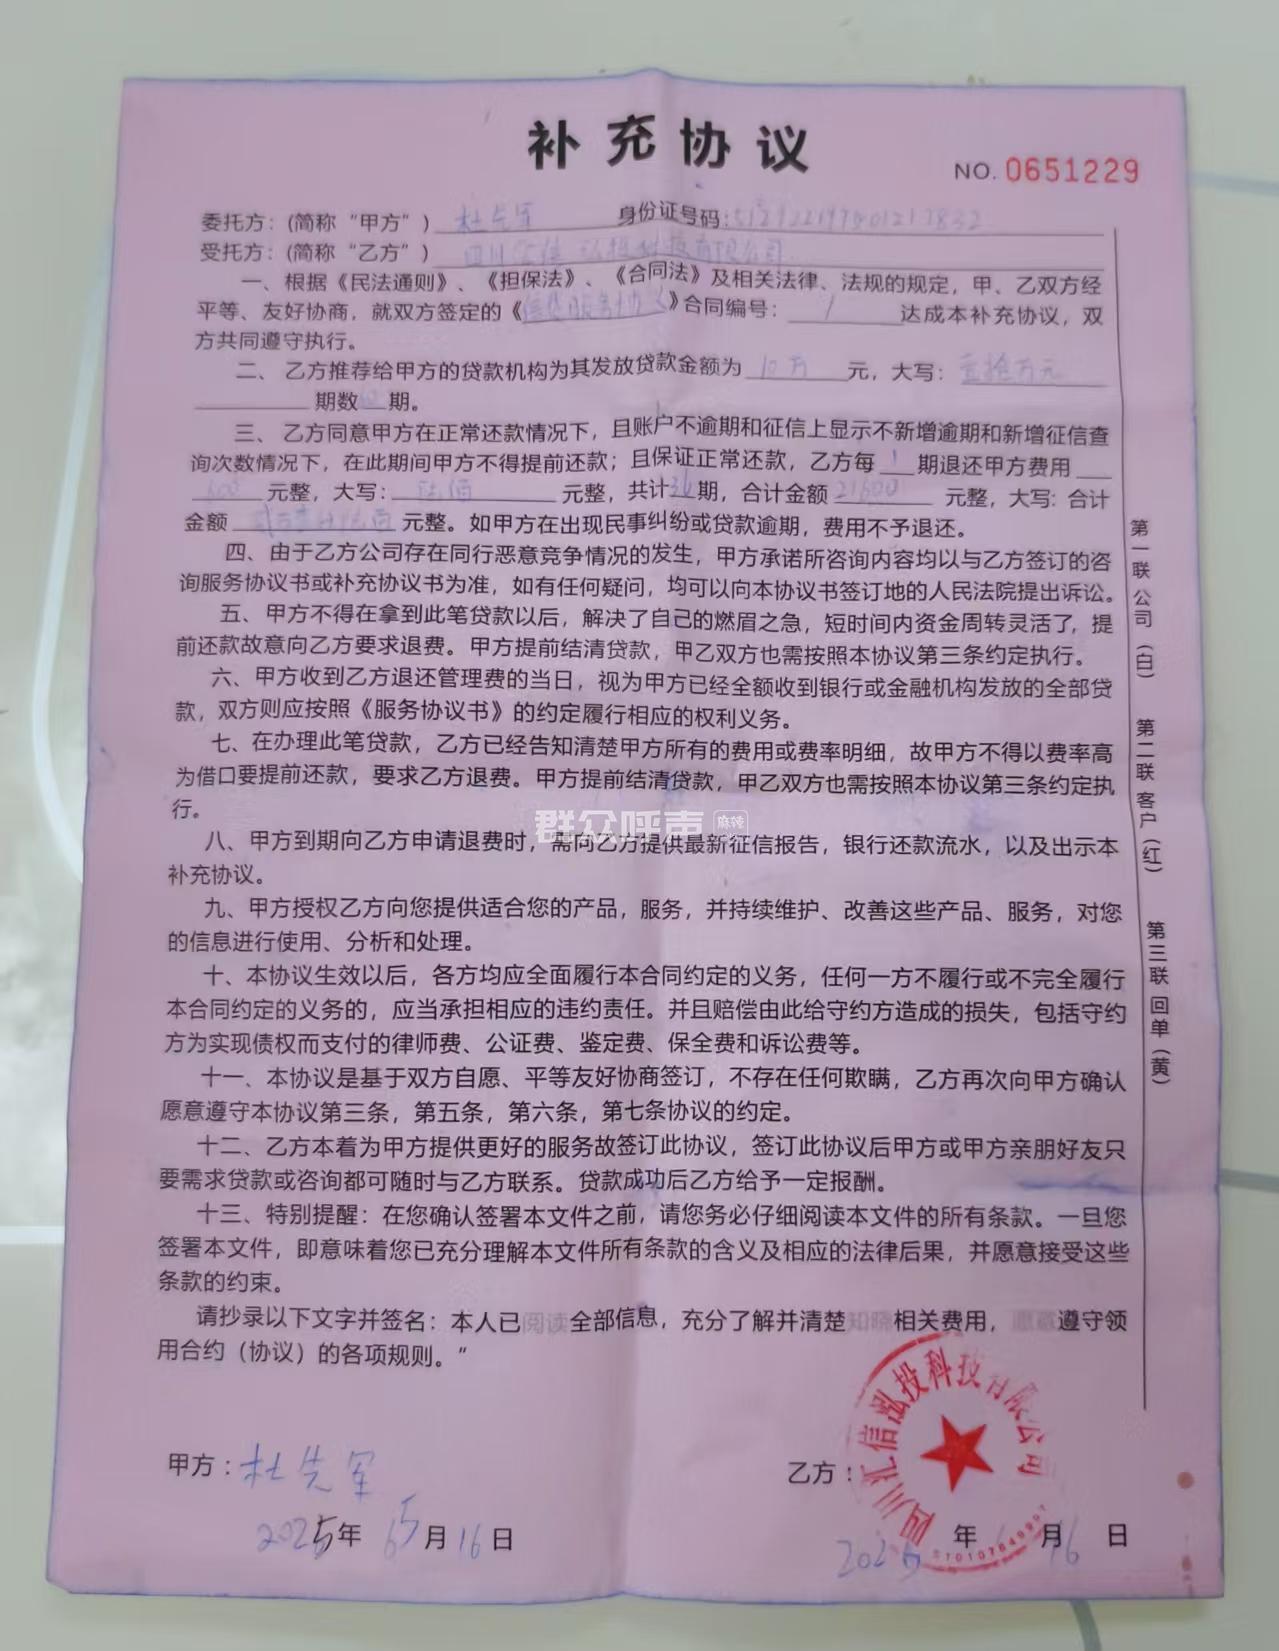 补充协议
NO. 0651229
委托方：(简称“甲方”) 杜先军 身份证号码：
受托方：(简称“乙方”) 四川汇信泓投科技有限公司
一、根据《民法通则》、《担保法》、《合同法》及相关法律、法规的规定，甲、乙双方经
平等、友好协商，就双方签定的《信贷服务协议》合同编号： / 达成本补充协议，双
方共同遵守执行。
二、乙方推荐给甲方的贷款机构为其发放贷款金额为 10万 元，大写：壹拾万元
期数 期。
三、乙方同意甲方在正常还款情况下，且账户不逾期和征信上显示不新增逾期和新增征信查
询次数情况下，在此期间甲方不得提前还款；且保证正常还款，乙方每 1 期退还甲方费用
600 元整，大写：陆佰 元整，共计36期，合计金额 21600 元整，大写：合计
金额 元整。如甲方在出现民事纠纷或贷款逾期，费用不予退还。
四、由于乙方公司存在同行恶意竞争情况的发生，甲方承诺所咨询内容均以与乙方签订的咨
询服务协议书或补充协议书为准，如有任何疑问，均可以向本协议书签订地的人民法院提出诉讼。
五、甲方不得在拿到此笔贷款以后，解决了自己的燃眉之急，短时间内资金周转灵活了，提
前还款故意向乙方要求退费。甲方提前结清贷款，甲乙双方也需按照本协议第三条约定执行。
六、甲方收到乙方退还管理费的当日，视为甲方已经全额收到银行或金融机构发放的全部贷
款，双方则应按照《服务协议书》的约定履行相应的权利义务。
七、在办理此笔贷款，乙方已经告知清楚甲方所有的费用或费率明细，故甲方不得以费率高
为借口要提前还款，要求乙方退费。甲方提前结清贷款，甲乙双方也需按照本协议第三条约定执
行。
群众呼声 麻辣
八、甲方到期向乙方申请退费时，需向乙方提供最新征信报告，银行还款流水，以及出示本
补充协议。
九、甲方授权乙方向您提供适合您的产品，服务，并持续维护、改善这些产品、服务，对您
的信息进行使用、分析和处理。
十、本协议生效以后，各方均应全面履行本合同约定的义务，任何一方不履行或不完全履行
本合同约定的义务的，应当承担相应的违约责任。并且赔偿由此给守约方造成的损失，包括守约
方为实现债权而支付的律师费、公证费、鉴定费、保全费和诉讼费等。
十一、本协议是基于双方自愿、平等友好协商签订，不存在任何欺瞒，乙方再次向甲方确认
愿意遵守本协议第三条，第五条，第六条，第七条协议的约定。
十二、乙方本着为甲方提供更好的服务故签订此协议，签订此协议后甲方或甲方亲朋好友只
要需求贷款或咨询都可随时与乙方联系。贷款成功后乙方给予一定报酬。
十三、特别提醒：在您确认签署本文件之前，请您务必仔细阅读本文件的所有条款。一旦您
签署本文件，即意味着您已充分理解本文件所有条款的含义及相应的法律后果，并愿意接受这些
条款的约束。
请抄录以下文字并签名：本人已阅读全部信息，充分了解并清楚知晓相关费用，愿意遵守领
用合约（协议）的各项规则。”
甲方：杜先军
2025年 月16日
乙方：
四川汇信泓投科技有限公司
2025年6月16日
第一联 公司（白） 第二联 客户（红） 第三联 回单（黄）